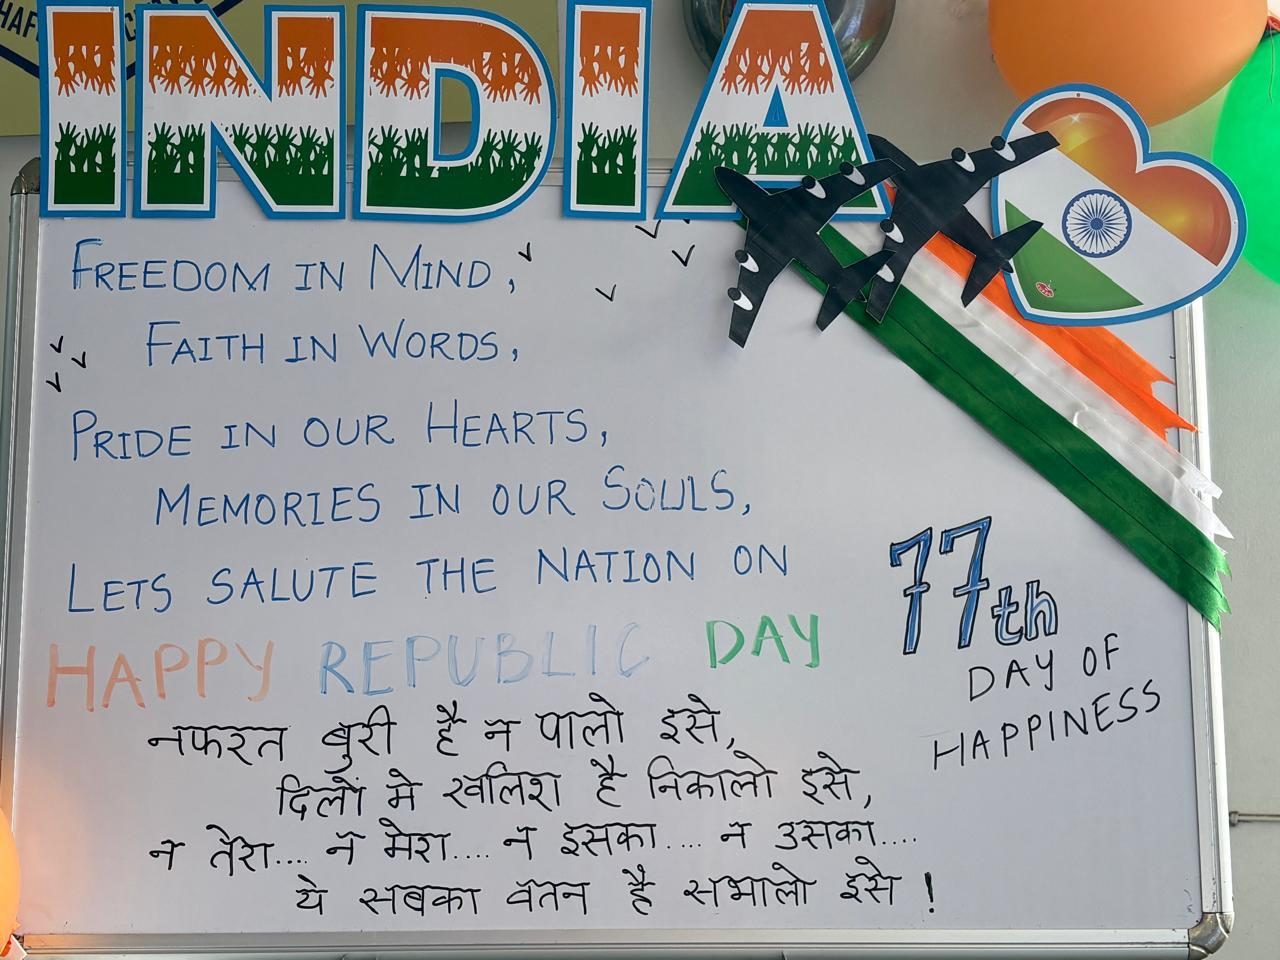 INDIA
FREEDOM IN MIND,
FAITH IN WORDS,
PRIDE IN OUR HEARTS,
MEMORIES IN OUR SOULS,
LETS SALUTE THE NATION ON
HAPPY REPUBLIC DAY
77th
DAY OF
HAPPINESS
नफरत बुरी है न पालो इसे,
दिलों मे खलिश है निकालो इसे,
न तेरा.... न मेरा.... न इसका.... न उसका....
ये सबका वतन है सभालो इसे !